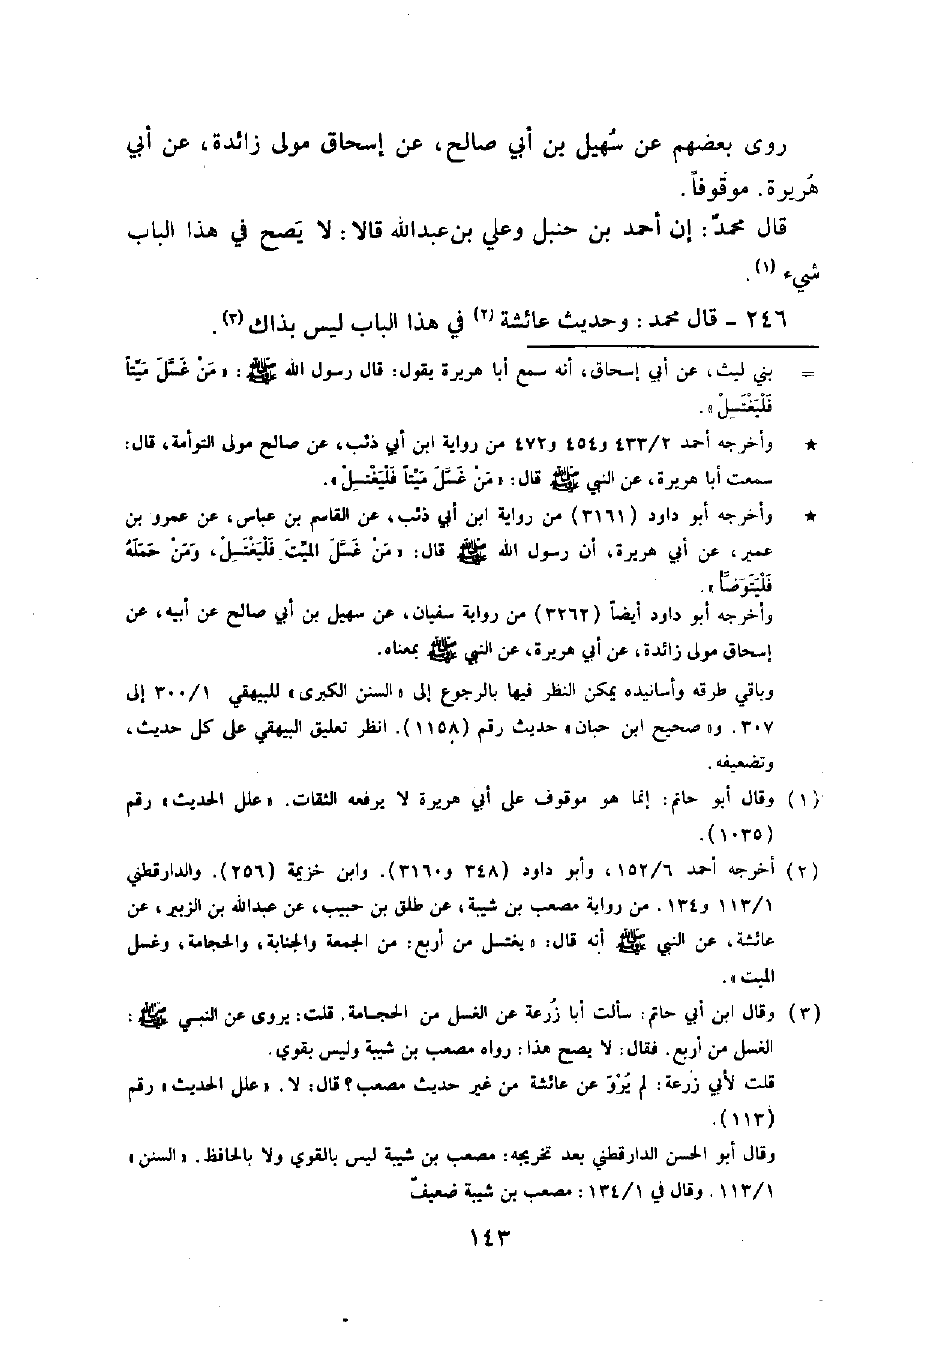 روى بعضهم عن سُهيل بن أبي صالح، عن إسحاق مولى زائدة، عن أبي
هُريرة. موقوفاً.
قال محمدٌ: إن أحمد بن حنبل وعلي بن عبدالله قالا: لا يَصح في هذا الباب
شيء (١).
٢٤٦ - قال محمد: وحديث عائشة (٢) في هذا الباب ليس بذاك (٣).
= بني ليث، عن أبي إسحاق، أنه سمع أبا هريرة يقول: قال رسول الله ﷺ: «مَنْ غَسَّلَ مَيِّتاً
فَلْيَغْتَسِلْ».
★ وأخرجه أحمد ٤٣٣/٢ و٤٥٤ و٤٧٢ من رواية ابن أبي ذئب، عن صالح مولى التوأمة، قال:
سمعت أبا هريرة، عن النبي ﷺ قال: «مَنْ غَسَّلَ مَيِّتاً فَلْيَغْتَسِلْ».
★ وأخرجه أبو داود (٣١٦١) من رواية ابن أبي ذئب، عن القاسم بن عباس، عن عمرو بن
عمير، عن أبي هريرة، أن رسول الله ﷺ قال: «مَنْ غَسَّلَ المَيِّتَ فَلْيَغْتَسِلْ، وَمَنْ حَمَلَهُ
فَلْيَتَوَضَّأْ».
وأخرجه أبو داود أيضاً (٣٢٦٢) من رواية سفيان، عن سهيل بن أبي صالح عن أبيه، عن
إسحاق مولى زائدة، عن أبي هريرة، عن النبي ﷺ بمعناه.
وباقي طرقه وأسانيده يمكن النظر فيها بالرجوع إلى «السنن الكبرى» للبيهقي ٣٠٠/١ إلى
٣٠٧. و«صحيح ابن حبان» حديث رقم (١١٥٨). انظر تعليق البيهقي على كل حديث،
وتضعيفه.
(١) وقال أبو حاتم: إنما هو موقوف على أبي هريرة لا يرفعه الثقات. «علل الحديث» رقم
(١٠٣٥).
(٢) أخرجه أحمد ١٥٢/٦، وأبو داود (٣٤٨ و٣١٦٠). وابن خزيمة (٢٥٦). والدارقطني
١١٣/١ و١٣٤. من رواية مصعب بن شيبة، عن طلق بن حبيب، عن عبدالله بن الزبير، عن
عائشة، عن النبي ﷺ أنه قال: «يغتسل من أربع: من الجمعة والجنابة، والحجامة، وغسل
الميت».
(٣) وقال ابن أبي حاتم: سألت أبا زُرعة عن الغسل من الحجامة. قلت: يروى عن النبي ﷺ:
الغسل من أربع. فقال: لا يصح هذا: رواه مصعب بن شيبة وليس بقوي.
قلت لأبي زرعة: لم يُرْوَ عن عائشة من غير حديث مصعب؟ قال: لا. «علل الحديث» رقم
(١١٣).
وقال أبو الحسن الدارقطني بعد تخريجه: مصعب بن شيبة ليس بالقوي ولا بالحافظ. «السنن»
١١٣/١. وقال في ١٣٤/١: مصعب بن شيبة ضعيفٌ
١٤٣